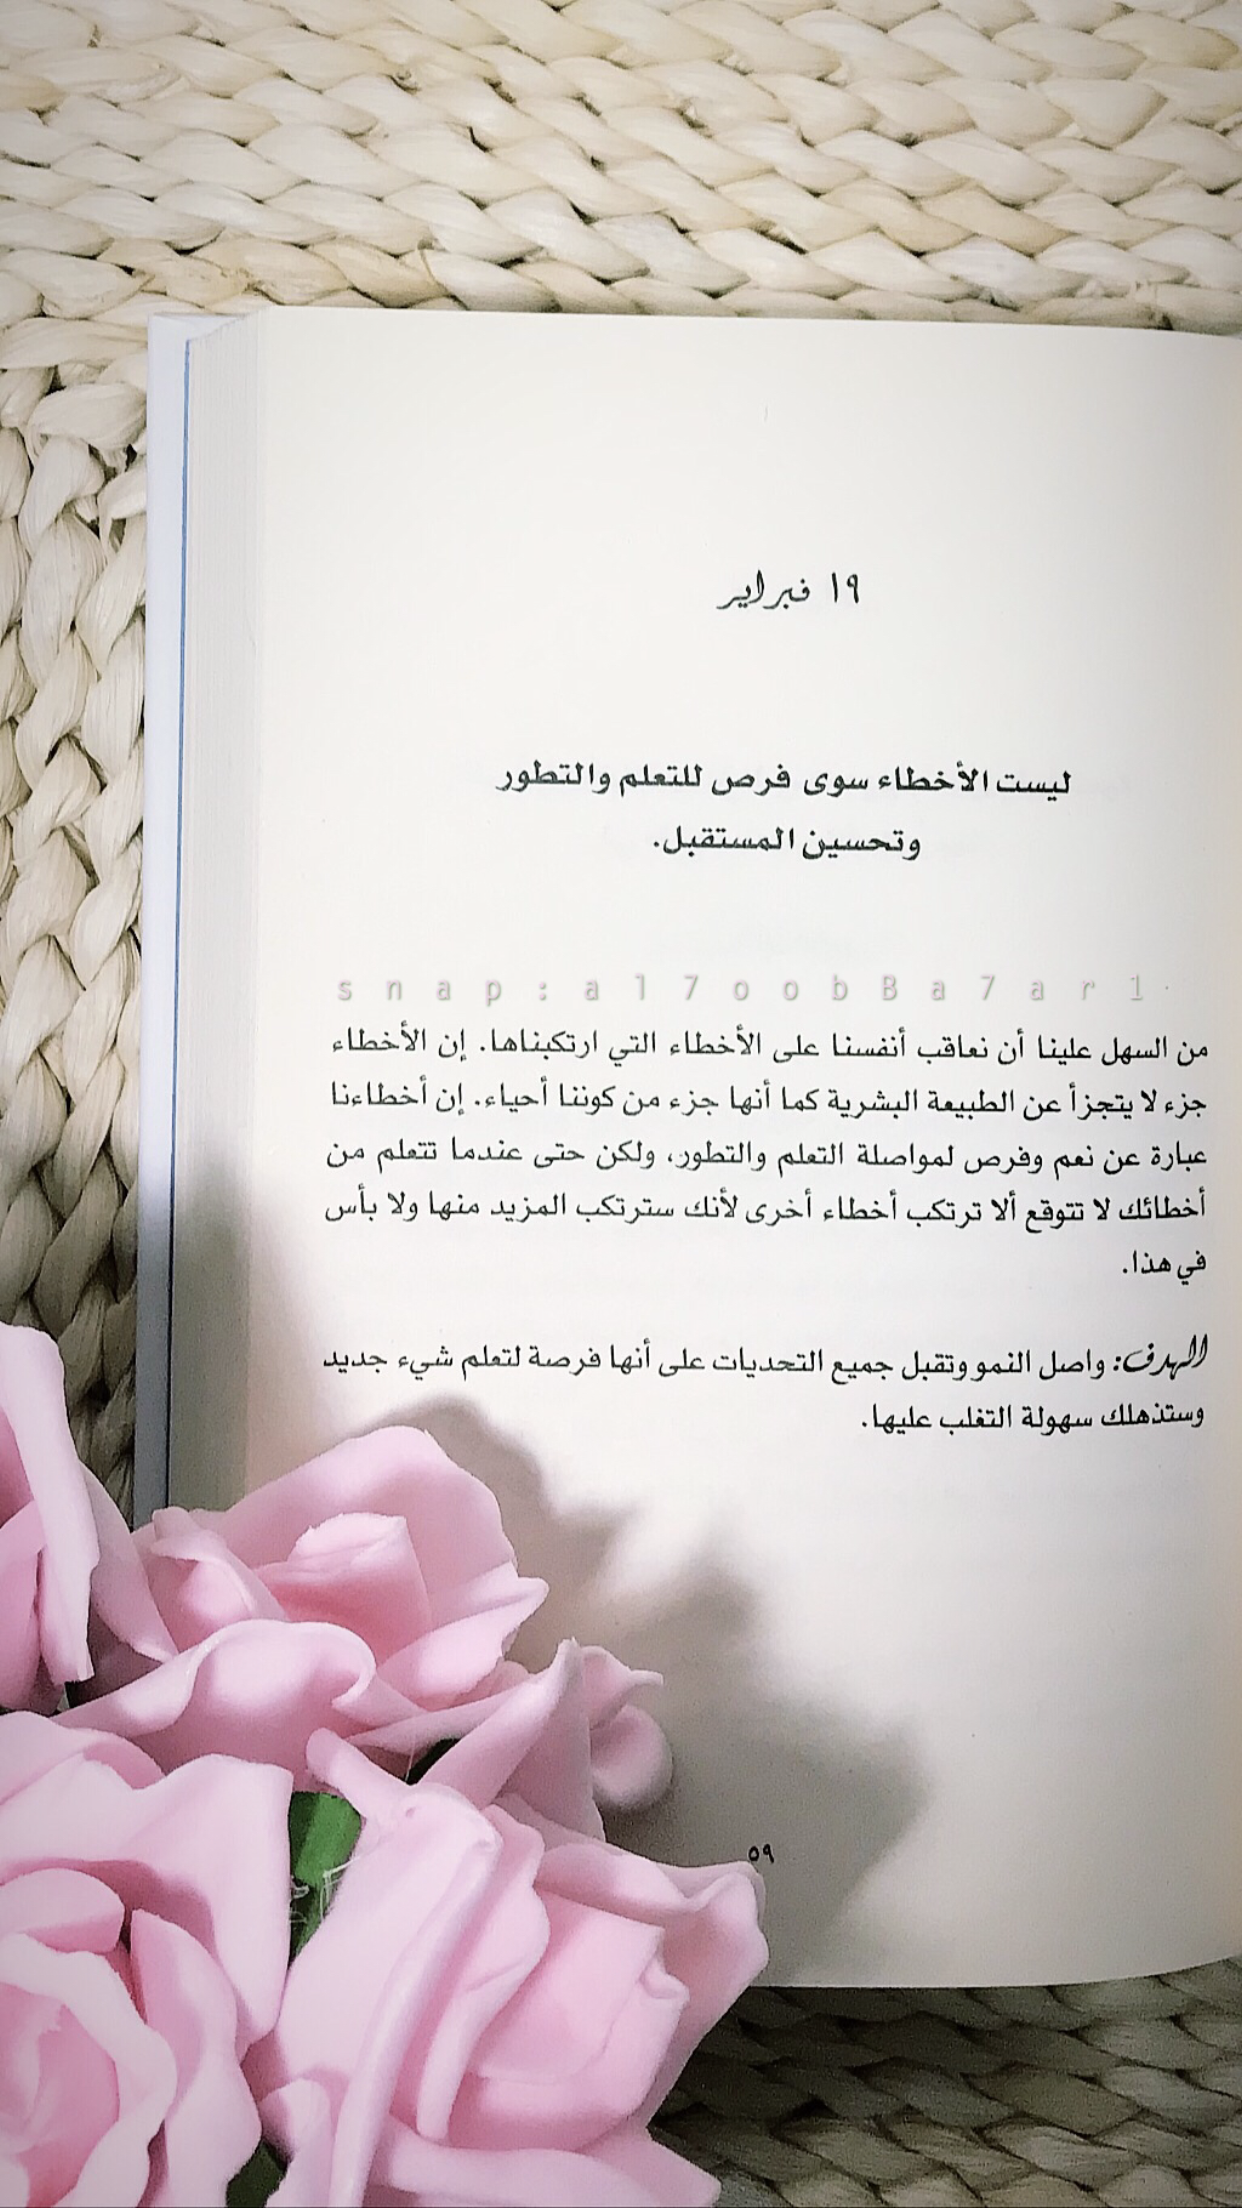 ١٩ فبراير
ليست الأخطاء سوى فرص للتعلم والتطور
وتحسين المستقبل.
snap:al7oobBa7ar1
من السهل علينا أن نعاقب أنفسنا على الأخطاء التي ارتكبناها. إن الأخطاء
جزء لا يتجزأ عن الطبيعة البشرية كما أنها جزء من كوننا أحياء. إن أخطاءنا
عبارة عن نعم وفرص لمواصلة التعلم والتطور، ولكن حتى عندما تتعلم من
أخطائك لا تتوقع ألا ترتكب أخطاء أخرى لأنك سترتكب المزيد منها ولا بأس
في هذا.
الهدف: واصل النمو وتقبل جميع التحديات على أنها فرصة لتعلم شيء جديد
وستذهلك سهولة التغلب عليها.
٥٩